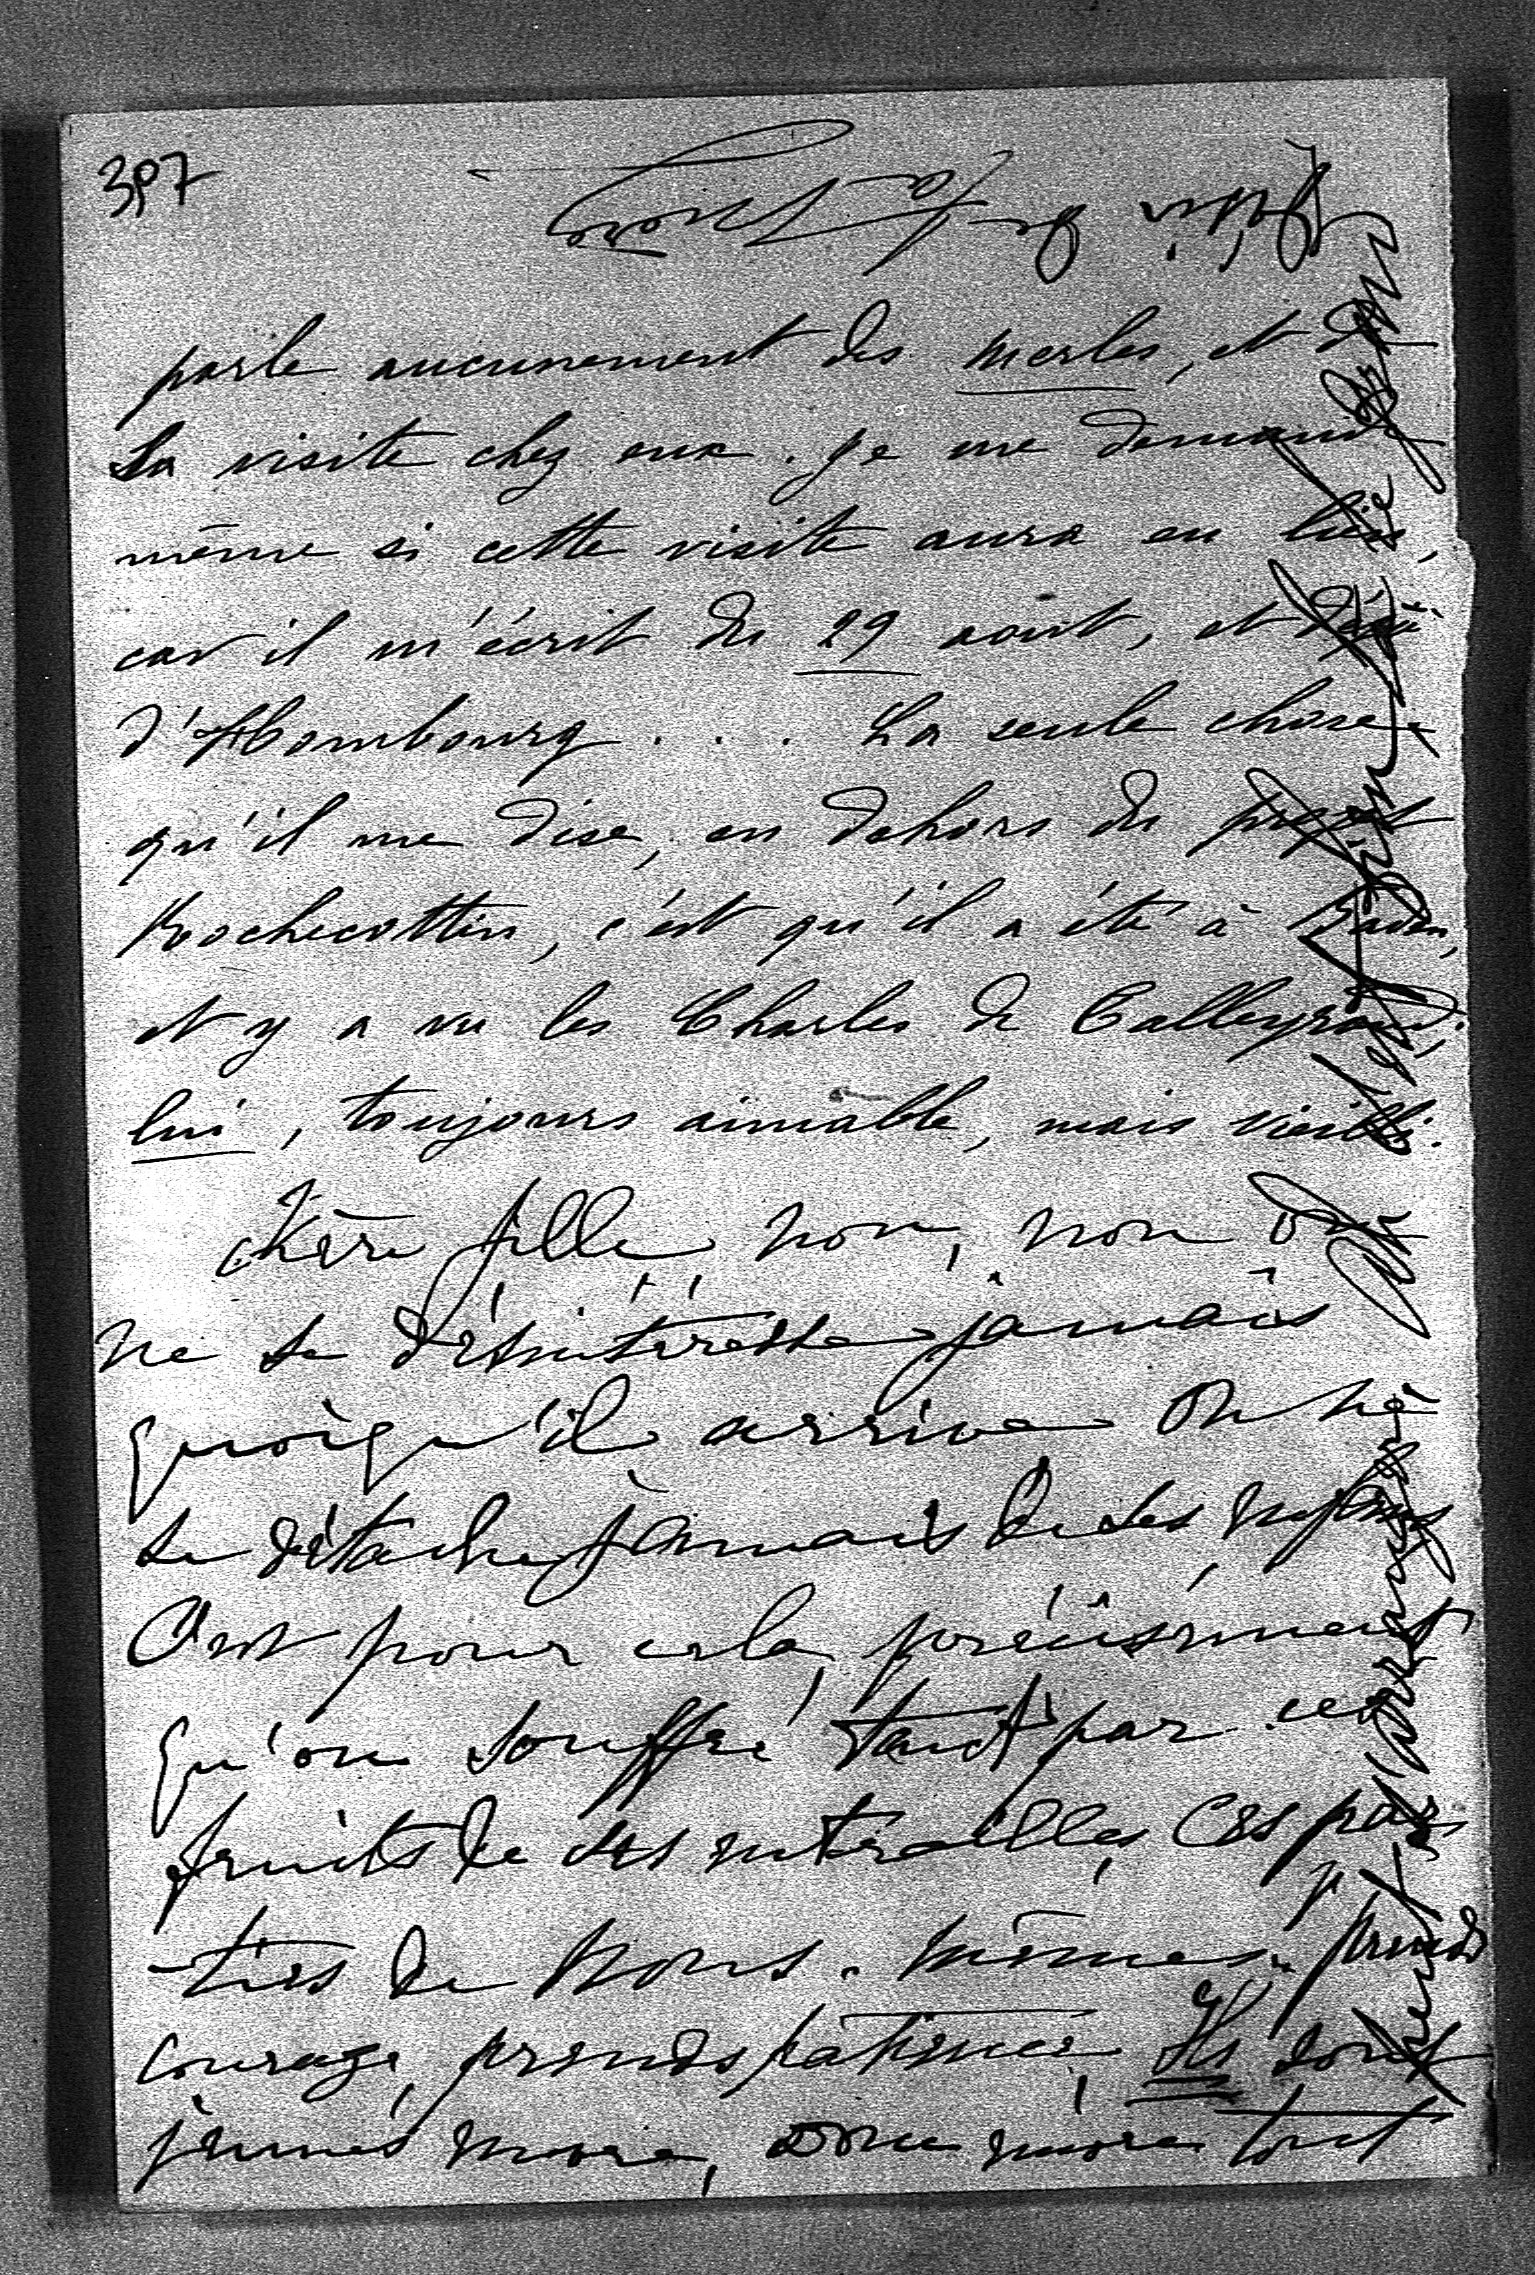 397
parle aucunement des merles, et de
la visite chez eux. je me demande
même si cette visite aura eu lieu,
car il m'écrit du 29 août, et déjà
d'Hombourg . . . La seule chose
qu'il me dise, en dehors du projet
Rochecottin, c'est qu'il a été à Baden,
et y a vu les Charles de Talleyrand.
lui, toujours aimable, mais vieilli.
Chère fille non, non on
ne se désintéresse jamais
quoiqu'il arrive on ne
se détache jamais de ses enfants
C'est pour cela, précisément
qu'on souffre tant par ces
fruits de ses entrailles, ces par
-ties de nous-mêmes. prends
courage, prends patience, Ils sont
jeunes encore, donc encore tout